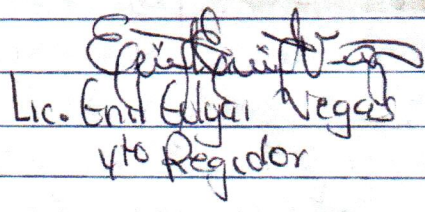 Lic. Enil Edgar Vegas
4to Regidor